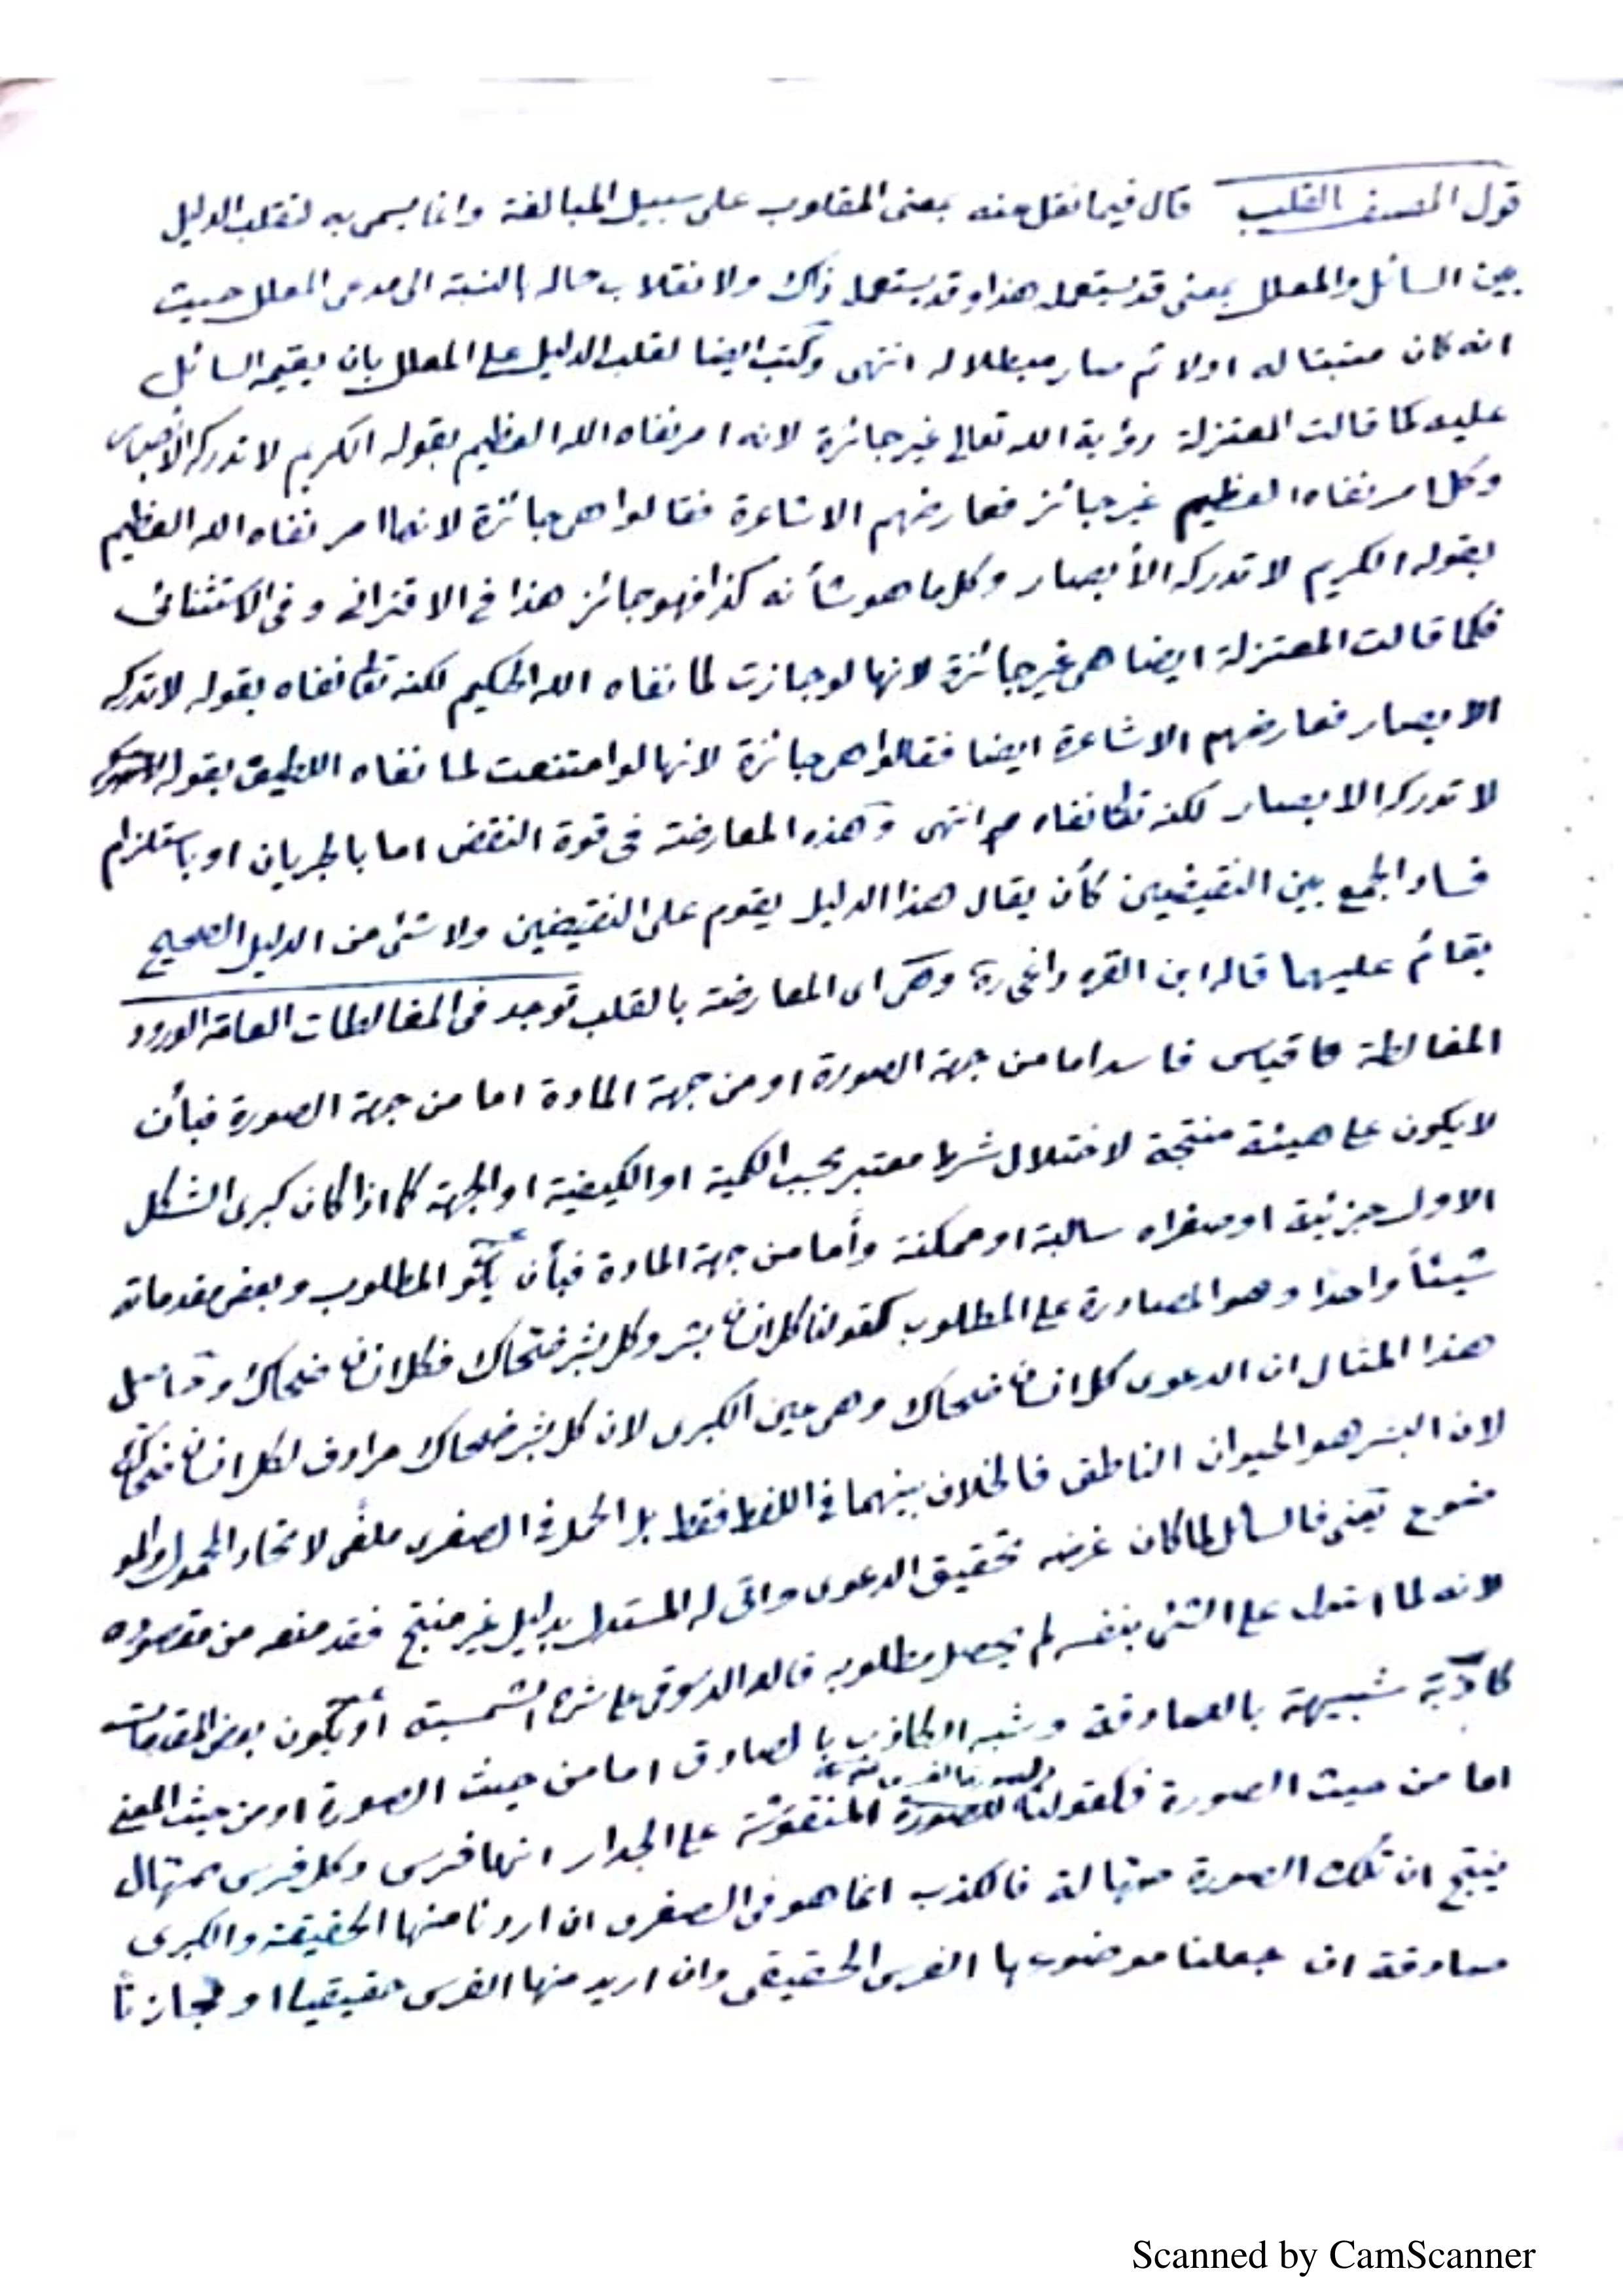 قول المصنف بالقلب قال فيما نقل عنه بمعنى المقلوب على سبيل المبالغة وانما يسمى به لتقلب الدليل
بين السائل والمعلل بمعنى قد يستعمله هذا وقد يستعمله ذاك ولانقلاب حاله بالنسبة الى مدعى المعلل حيث
انه كان مثبتا له اولا ثم صار مبطلا له انتهى وكتب ايضا لقلب الدليل على المعلل بان يقيمه السائل
عليه كما قالت المعتزلة رؤية الله تعالى غير جائزة لانه امر نفاه الله العظيم بقوله الكريم لا تدركه الأبصار
وكل امر نفاه العظيم غير جائز فعارضهم الاشاعرة فقالوا هى جائزة لانها امر نفاه الله العظيم
بقوله الكريم لا تدركه الأبصار وكل ما هو شأنه كذا فهو جائز هذا في الاقترانى وفى الاستثنائى
فكما قالت المعتزلة ايضا هى غير جائزة لانها لو جازت لما نفاه الله الحكيم لكنه نفاه بقوله لا تدركه
الابصار فعارضهم الاشاعرة ايضا فقالوا هى جائزة لانها لو امتنعت لما نفاه اللطيف بقوله
لا تدركه الابصار لكنه نفاه انتهى وهذه المعارضة فى قوة النقض اما بالجريان او باستلزام
فساد الجمع بين النقيضين كأن يقال هذا الدليل يقوم على النقيضين ولا شئ من الدليل الصحيح
بقائم عليهما قاله ابن القره داغى وهى اى المعارضة بالقلب توجد فى المغالطات العامة الورود
المغالطة قياس فاسد اما من جهة الصورة او من جهة المادة اما من جهة الصورة فبأن
لا يكون على هيئة منتجة لاختلال شرط معتبر بحسب الكمية او الكيفية او الجهة كما اذا كان كبرى الشكل
الاول جزئية او صغراه سالبة او ممكنة وأما من جهة المادة فبأن يكون المطلوب وبعض مقدماته
شيئاً واحدا وهو المصادرة على المطلوب كقولنا كل انسان بشر وكل بشر ضحاك فكل انسان ضحاك
هذا المثال ان الدعوى كل انسان ضحاك وهى عين الكبرى لان كل بشر ضحاك مرادف لكل انسان ضحاك
لان البشر هو الحيوان الناطق فالخلاف بينهما في اللفظ فقط بل الحمل في الصغرى ملغى لاتحاد المحمول والمو
ضوع فالسائل لما كان غرضه تحقيق الدعوى واتى له المستدل بدليل غير منتج فقد منعه من مقصوده
لانه لما استدل على الشئ بنفسه لم يحصل مطلوبه قاله الدسوقى على شرح الشمسية أو يكون بعض المقدمات
كاذبة شبيهة بالصادقة وشبه الكاذب بالصادق اما من حيث الصورة او من حيث المعنى
اما من حيث الصورة فكقولنا للصورة المنقوشة على الجدار انها فرس وكل فرس صهال
ينتج ان تلك الصورة صهالة فالكذب انما هو فى الصغرى ان اردنا منها الحقيقة والكبرى
صادقة ان جعلنا موضوعها الفرس الحقيقى وان اريد منها الفرس حقيقيا او مجازيا
Scanned by CamScanner